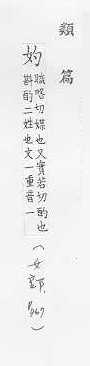 類篇
妁
職略切媒也又實若切酌也
斟酌二姓也文一重音一
(女部.P.467)